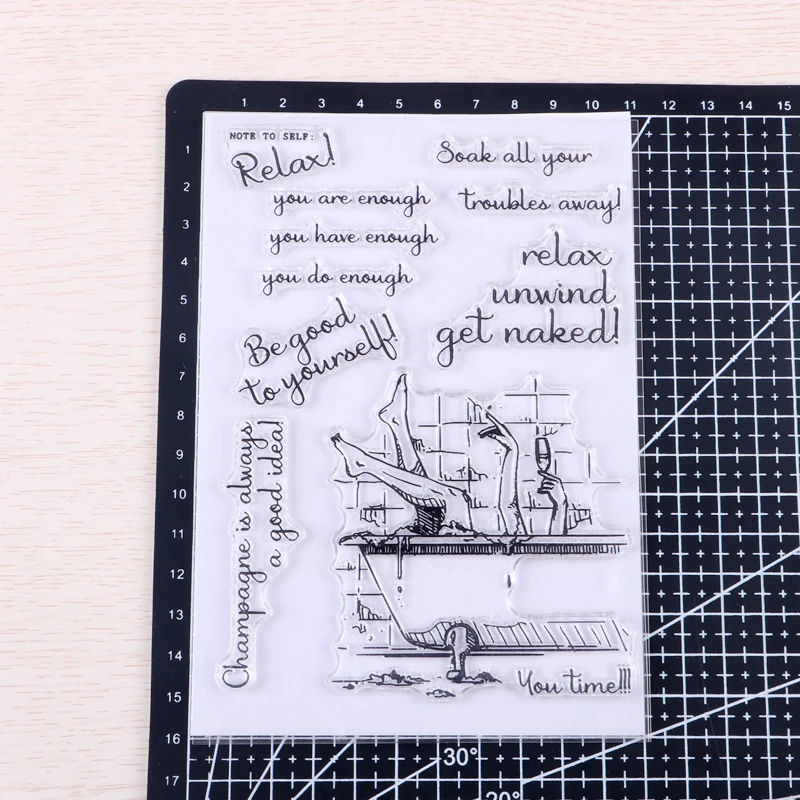 1 2 3 4 5 6 7 8 9 10 11 12 13 14 15
NOTE TO SELF:
Relax!
you are enough
you have enough
you do enough
Be good
to yourself!
Champagne is always
a good idea!
Soak all your
troubles away!
relax
unwind
get naked!
You time!!!
1
2
3
4
5
6
7
8
9
10
11
12
13
14
15
16
17
30°
20°